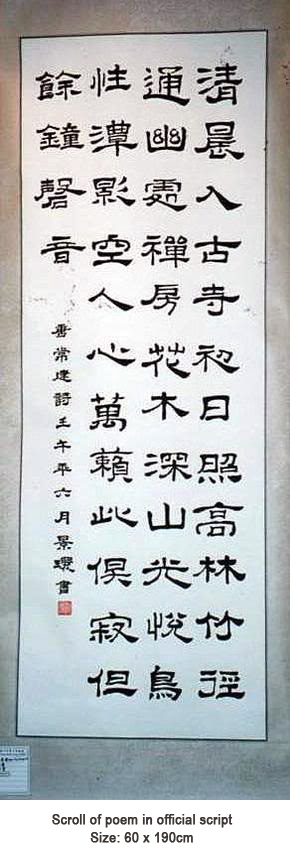 清晨入古寺初日照高林竹徑
通幽處禪房花木深山光悅鳥
性潭影空人心萬籟此俱寂但
餘鐘磬音
唐常建詩壬午年六月景書
Scroll of poem in official script
Size: 60 x 190cm